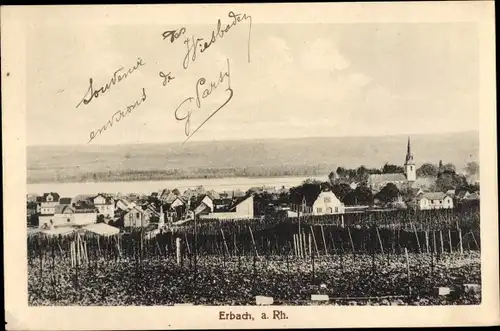 Souvenir des
environs de Wiesbaden
G Parsy
Erbach, a. Rh.